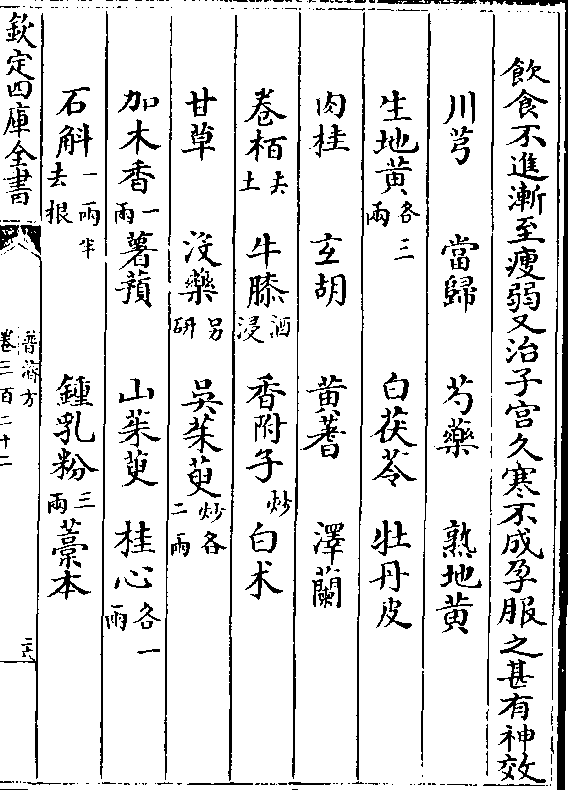 飲食不進漸至瘦弱又治子宮久寒不成孕服之甚有神效
川芎　當歸　芍藥　熟地黄
生地黄各三兩　白茯苓　牡丹皮
肉桂　玄胡　黄蓍　澤蘭
卷栢去土　牛膝酒浸　香附子炒　白术
甘草　沒藥另研　吳茱萸炒各二兩
加木香一兩　薯蕷　山茱萸　桂心各一兩
石斛去根一兩半　鍾乳粉三兩　藁本
欽定四庫全書
普濟方
卷三百二十二